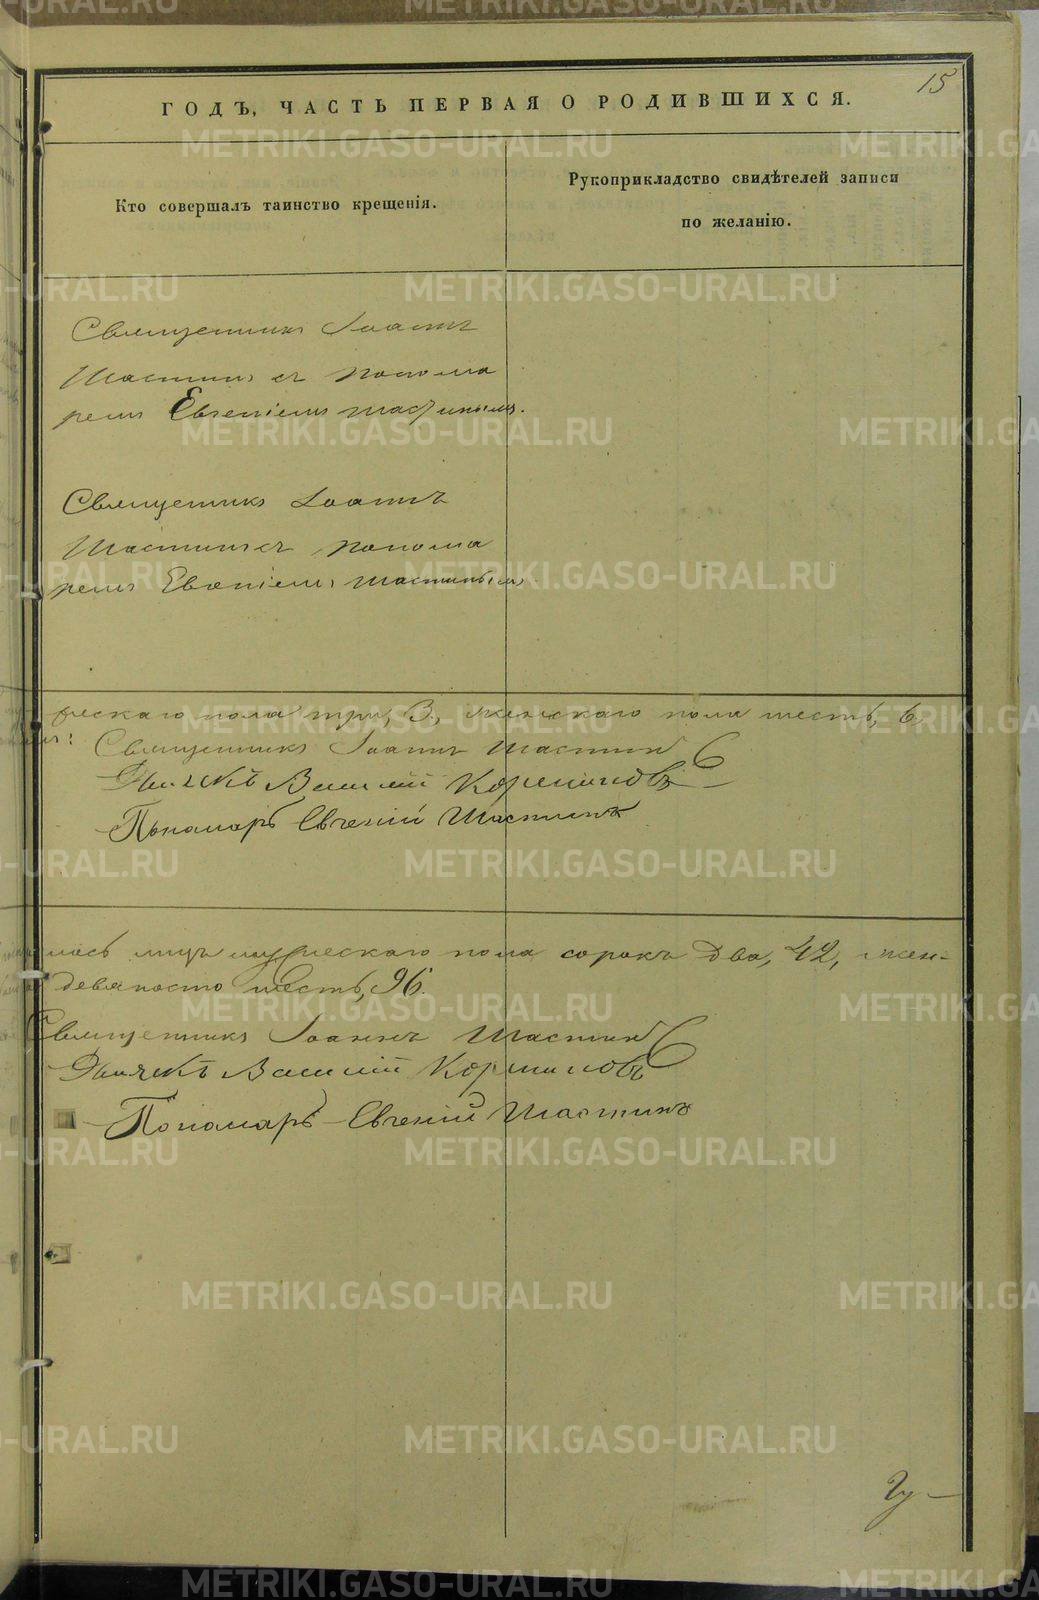 15
ГОДЪ, ЧАСТЬ ПЕРВАЯ О РОДИВШИХСЯ.
Кто совершалъ таинство крещенія.
Рукоприкладство свидѣтелей записи
по желанію.
Священникъ Іоаннъ
Шастинъ съ понома
ремъ Евгеніемъ Шастинымъ.
Священникъ Іоаннъ
Шастинъ съ понома
ремъ Евгеніемъ Шастинымъ.
ческаго пола три, 3, женскаго пола шесть, 6,
Священникъ Іоаннъ Шастинъ
Дьячекъ Василій
Пономарь Евгеній Шастинъ
лось лицъ мужескаго пола сорокъ два, 42, жен-
девяносто шесть, 96.
Священникъ Іоаннъ Шастинъ
Дьячекъ Василій
Пономарь Евгеній Шастинъ
METRIKI.GASO-URAL.RU